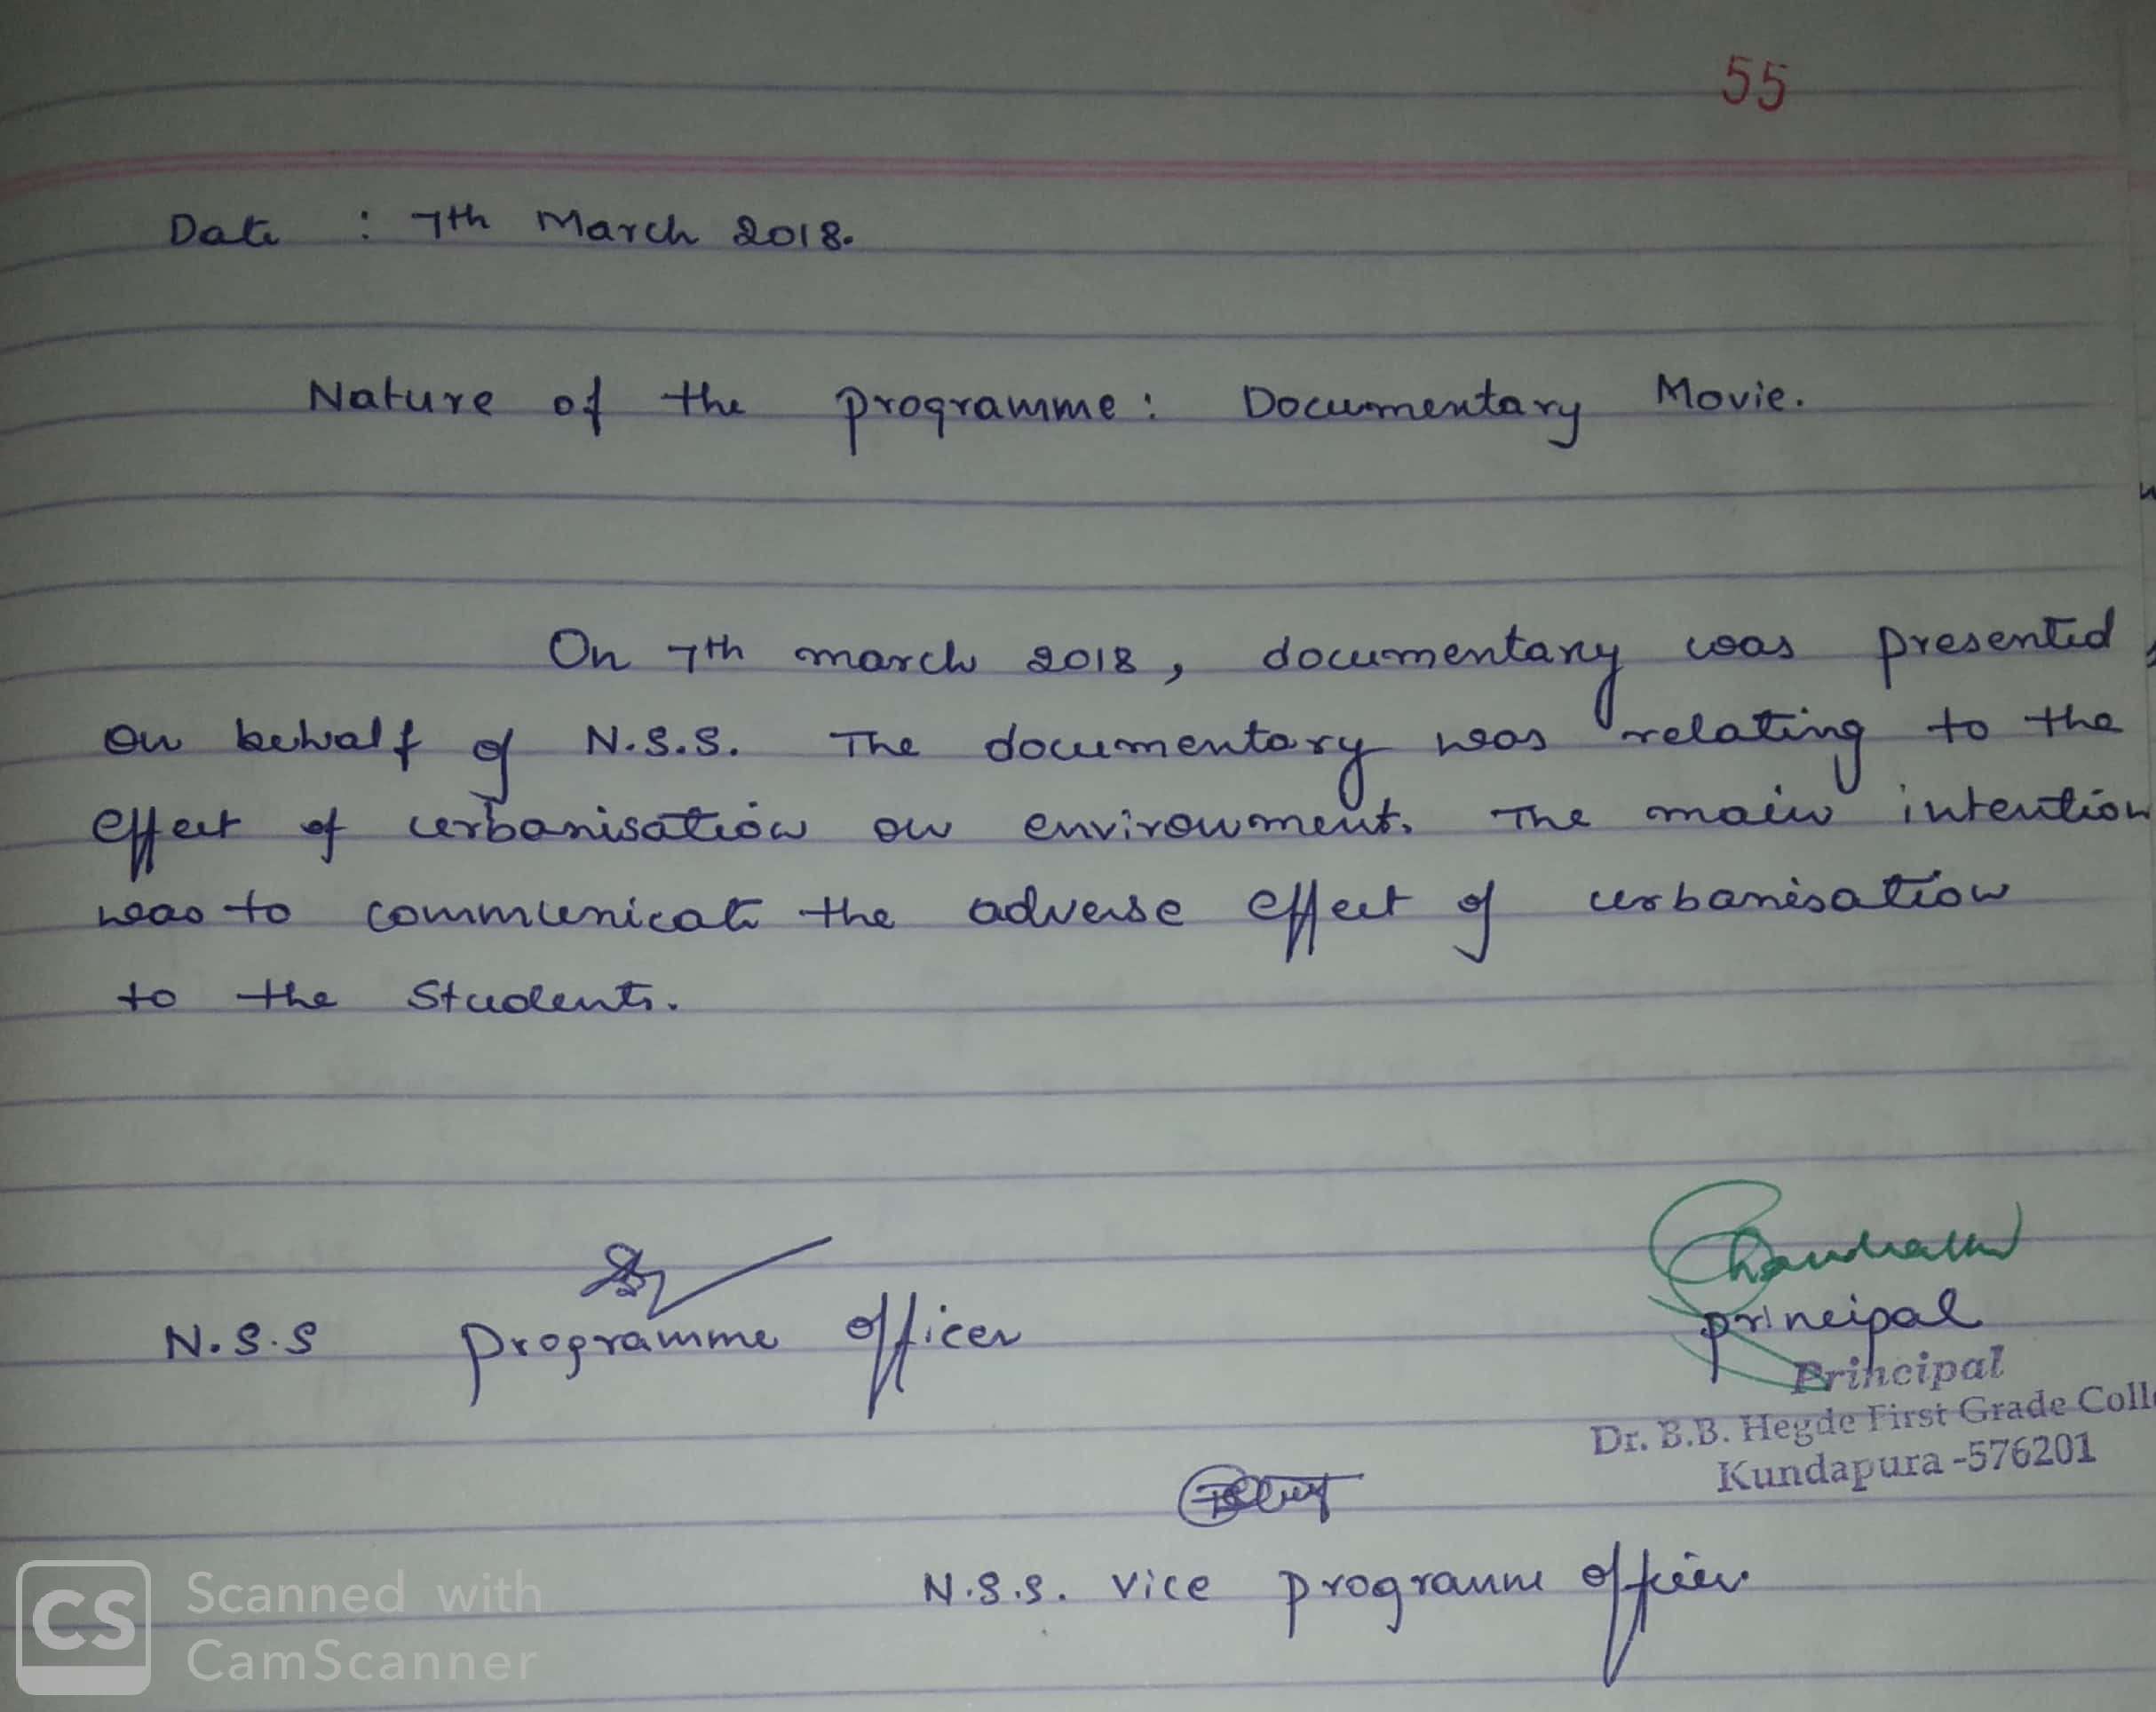 55
Date : 7th March 2018.
Nature of the programme : Documentary Movie.
On 7th march 2018, documentary was presented
on behalf of N.S.S. The documentary was relating to the
effect of urbanisation on environment. The main intention
was to communicate the adverse effect of urbanisation
to the Students.
N.S.S programme officer
principal
Principal
Dr. B.B. Hegde First Grade Coll
Kundapura -576201
N.S.S. vice programme officer
CS Scanned with
CamScanner